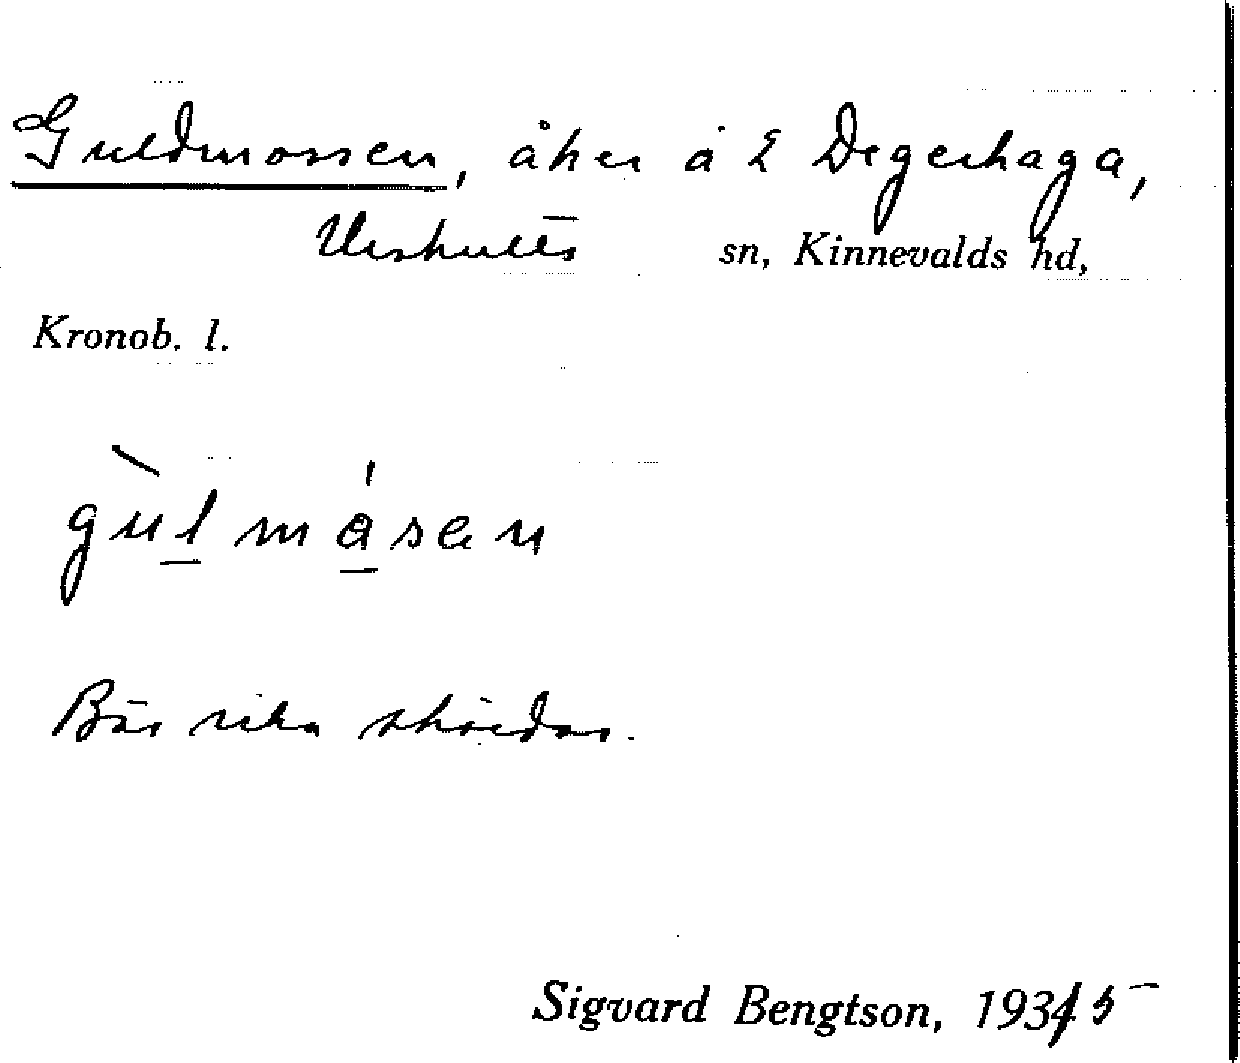 Guldmossen, åker å 2 Degerhaga,
Urshults sn, Kinnevalds hd,
Kronob. l.
gùlmåsen
Bär rika skördar.
Sigvard Bengtson, 1935